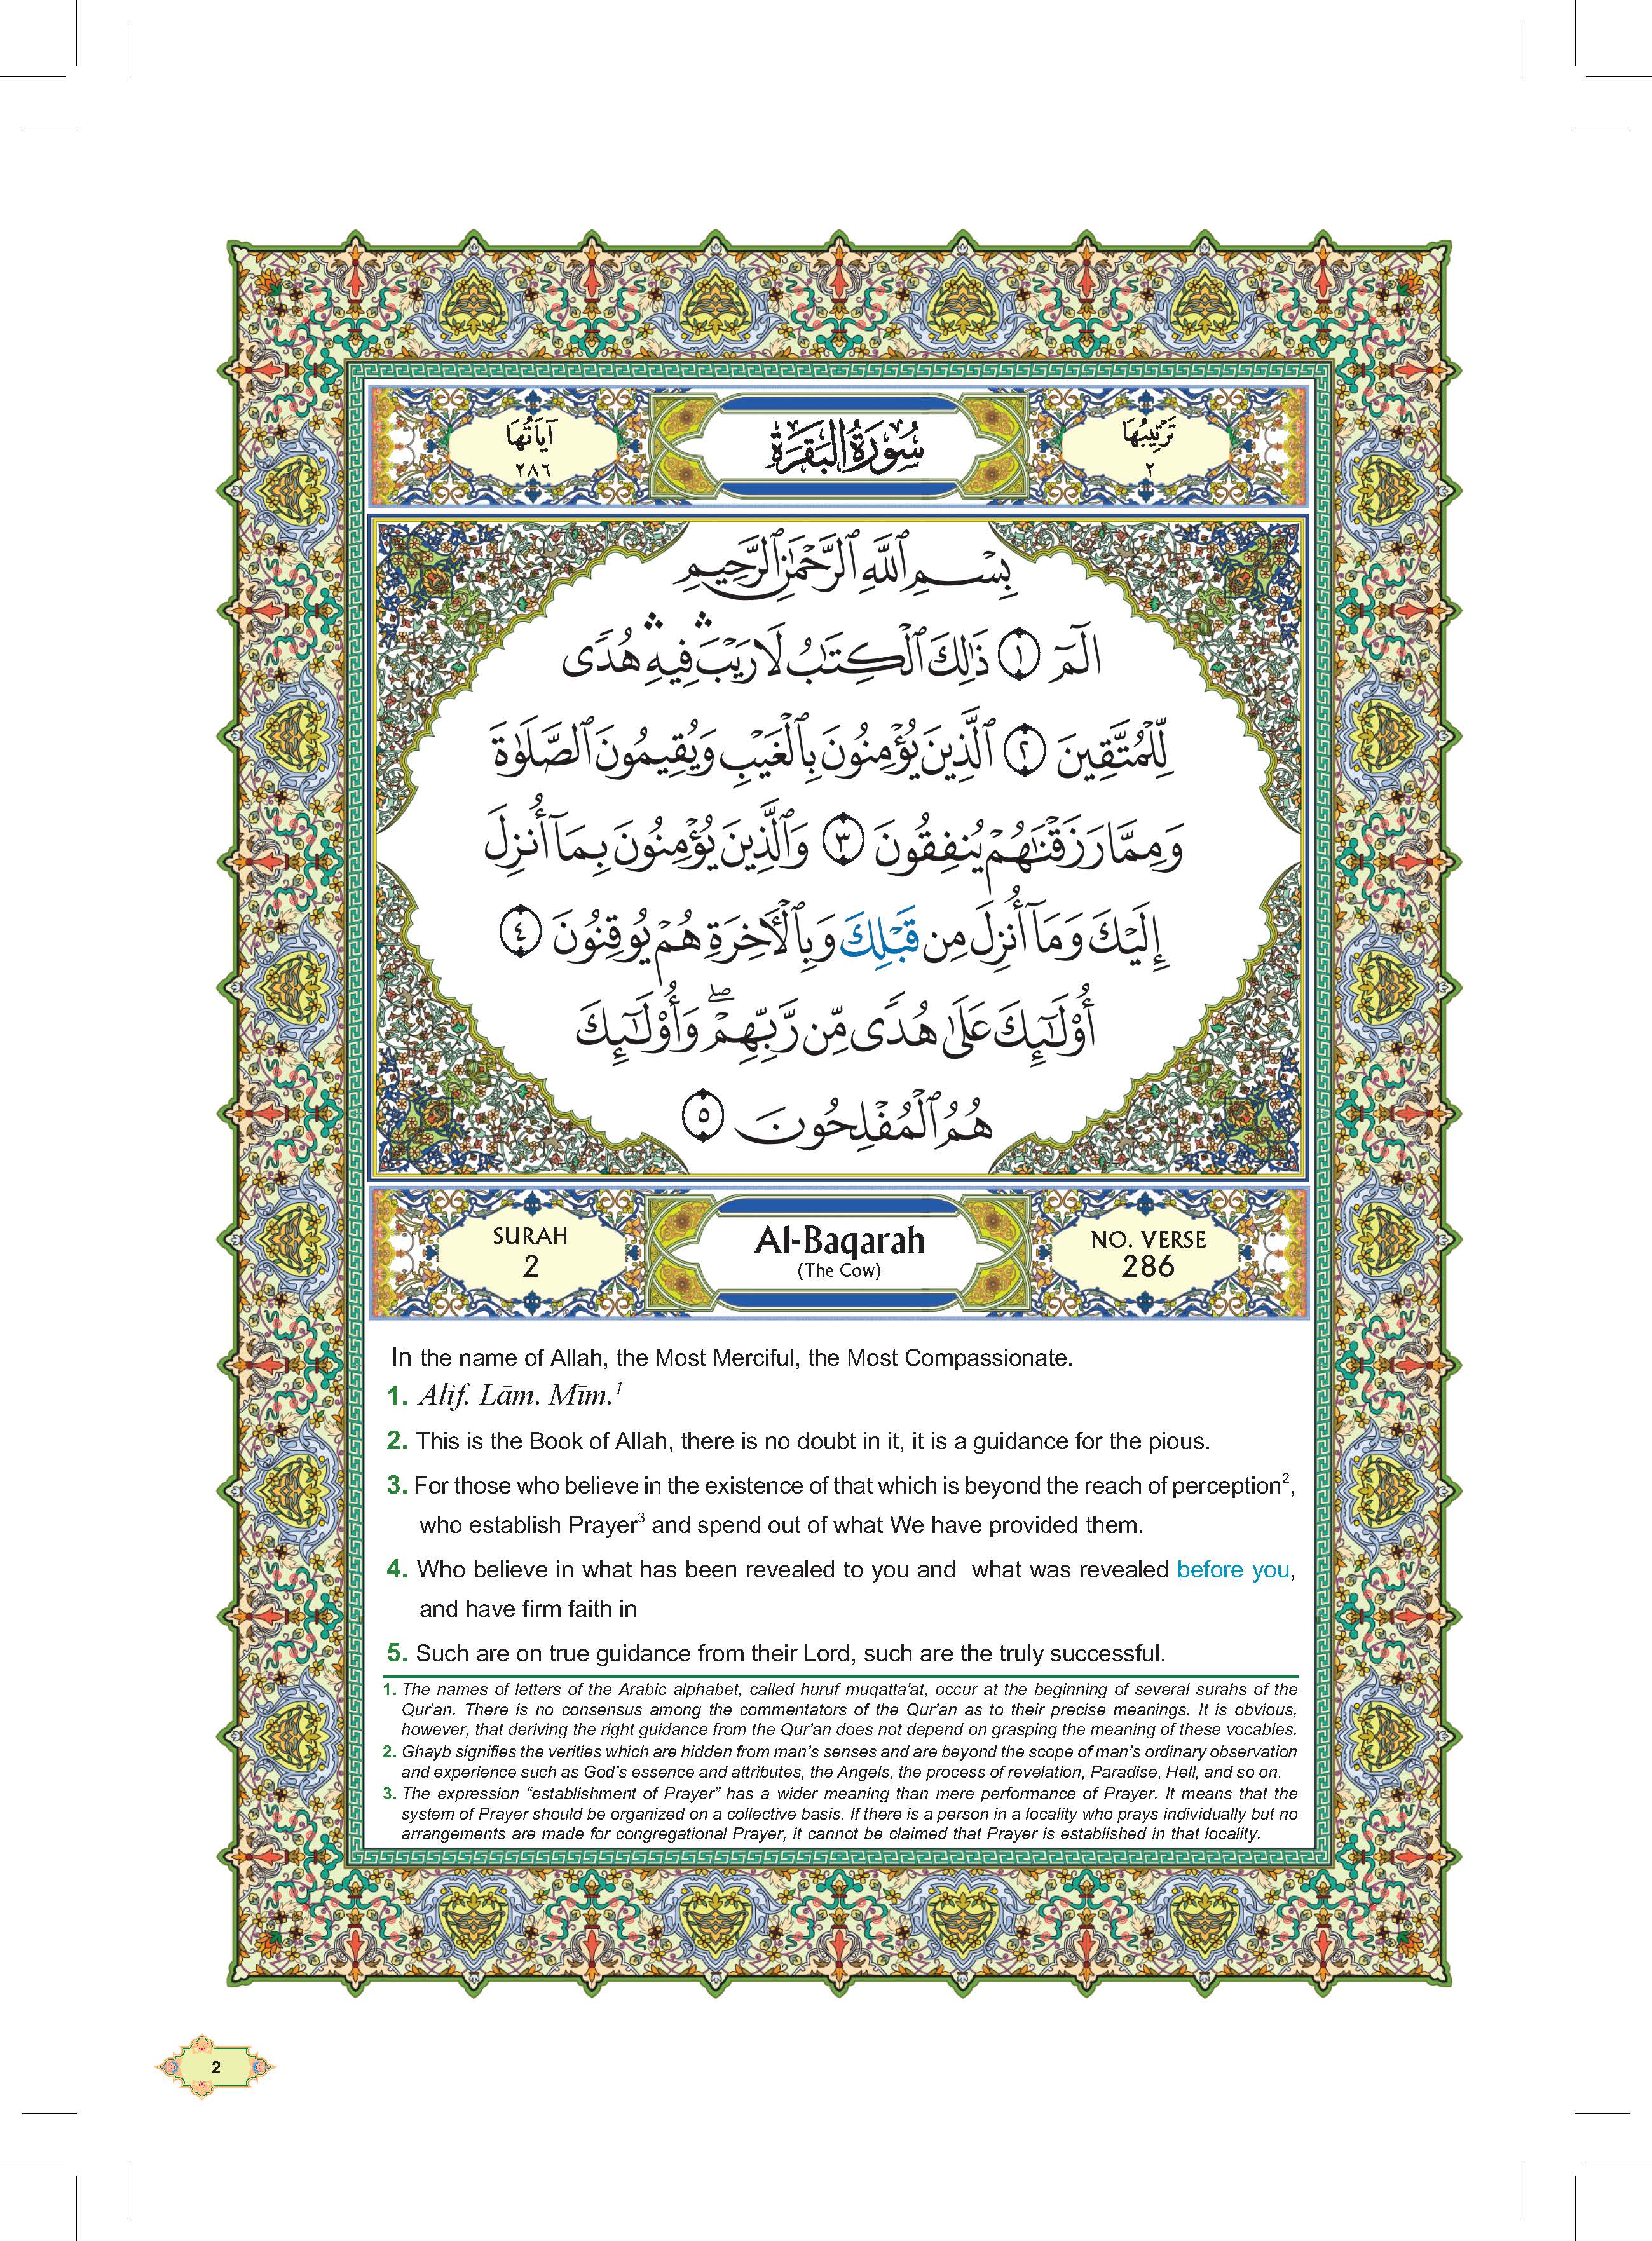 آيَاتُهَا
٢٨٦
سُورَةُ البَقَرَةِ
تَرْتِيبُهَا
٢
بِسْمِ ٱللَّهِ ٱلرَّحْمَٰنِ ٱلرَّحِيمِ
الٓمٓ ١ ذَٰلِكَ ٱلْكِتَٰبُ لَا رَيْبَ ۛ فِيهِ ۛ هُدًى
لِّلْمُتَّقِينَ ٢ ٱلَّذِينَ يُؤْمِنُونَ بِٱلْغَيْبِ وَيُقِيمُونَ ٱلصَّلَوٰةَ
وَمِمَّا رَزَقْنَٰهُمْ يُنفِقُونَ ٣ وَٱلَّذِينَ يُؤْمِنُونَ بِمَآ أُنزِلَ
إِلَيْكَ وَمَآ أُنزِلَ مِن قَبْلِكَ وَبِٱلْأَخِرَةِ هُمْ يُوقِنُونَ ٤
أُو۟لَٰٓئِكَ عَلَىٰ هُدًى مِّن رَّبِّهِمْ ۖ وَأُو۟لَٰٓئِكَ
هُمُ ٱلْمُفْلِحُونَ ٥
SURAH
2
Al-Baqarah
(The Cow)
NO. VERSE
286
In the name of Allah, the Most Merciful, the Most Compassionate.
1. Alif. Lām. Mīm.1
2. This is the Book of Allah, there is no doubt in it, it is a guidance for the pious.
3. For those who believe in the existence of that which is beyond the reach of perception2,
who establish Prayer3 and spend out of what We have provided them.
4. Who believe in what has been revealed to you and what was revealed before you,
and have firm faith in
5. Such are on true guidance from their Lord, such are the truly successful.
1. The names of letters of the Arabic alphabet, called huruf muqatta'at, occur at the beginning of several surahs of the
Qur'an. There is no consensus among the commentators of the Qur'an as to their precise meanings. It is obvious,
however, that deriving the right guidance from the Qur'an does not depend on grasping the meaning of these vocables.
2. Ghayb signifies the verities which are hidden from man's senses and are beyond the scope of man's ordinary observation
and experience such as God's essence and attributes, the Angels, the process of revelation, Paradise, Hell, and so on.
3. The expression “establishment of Prayer” has a wider meaning than mere performance of Prayer. It means that the
system of Prayer should be organized on a collective basis. If there is a person in a locality who prays individually but no
arrangements are made for congregational Prayer, it cannot be claimed that Prayer is established in that locality.
2